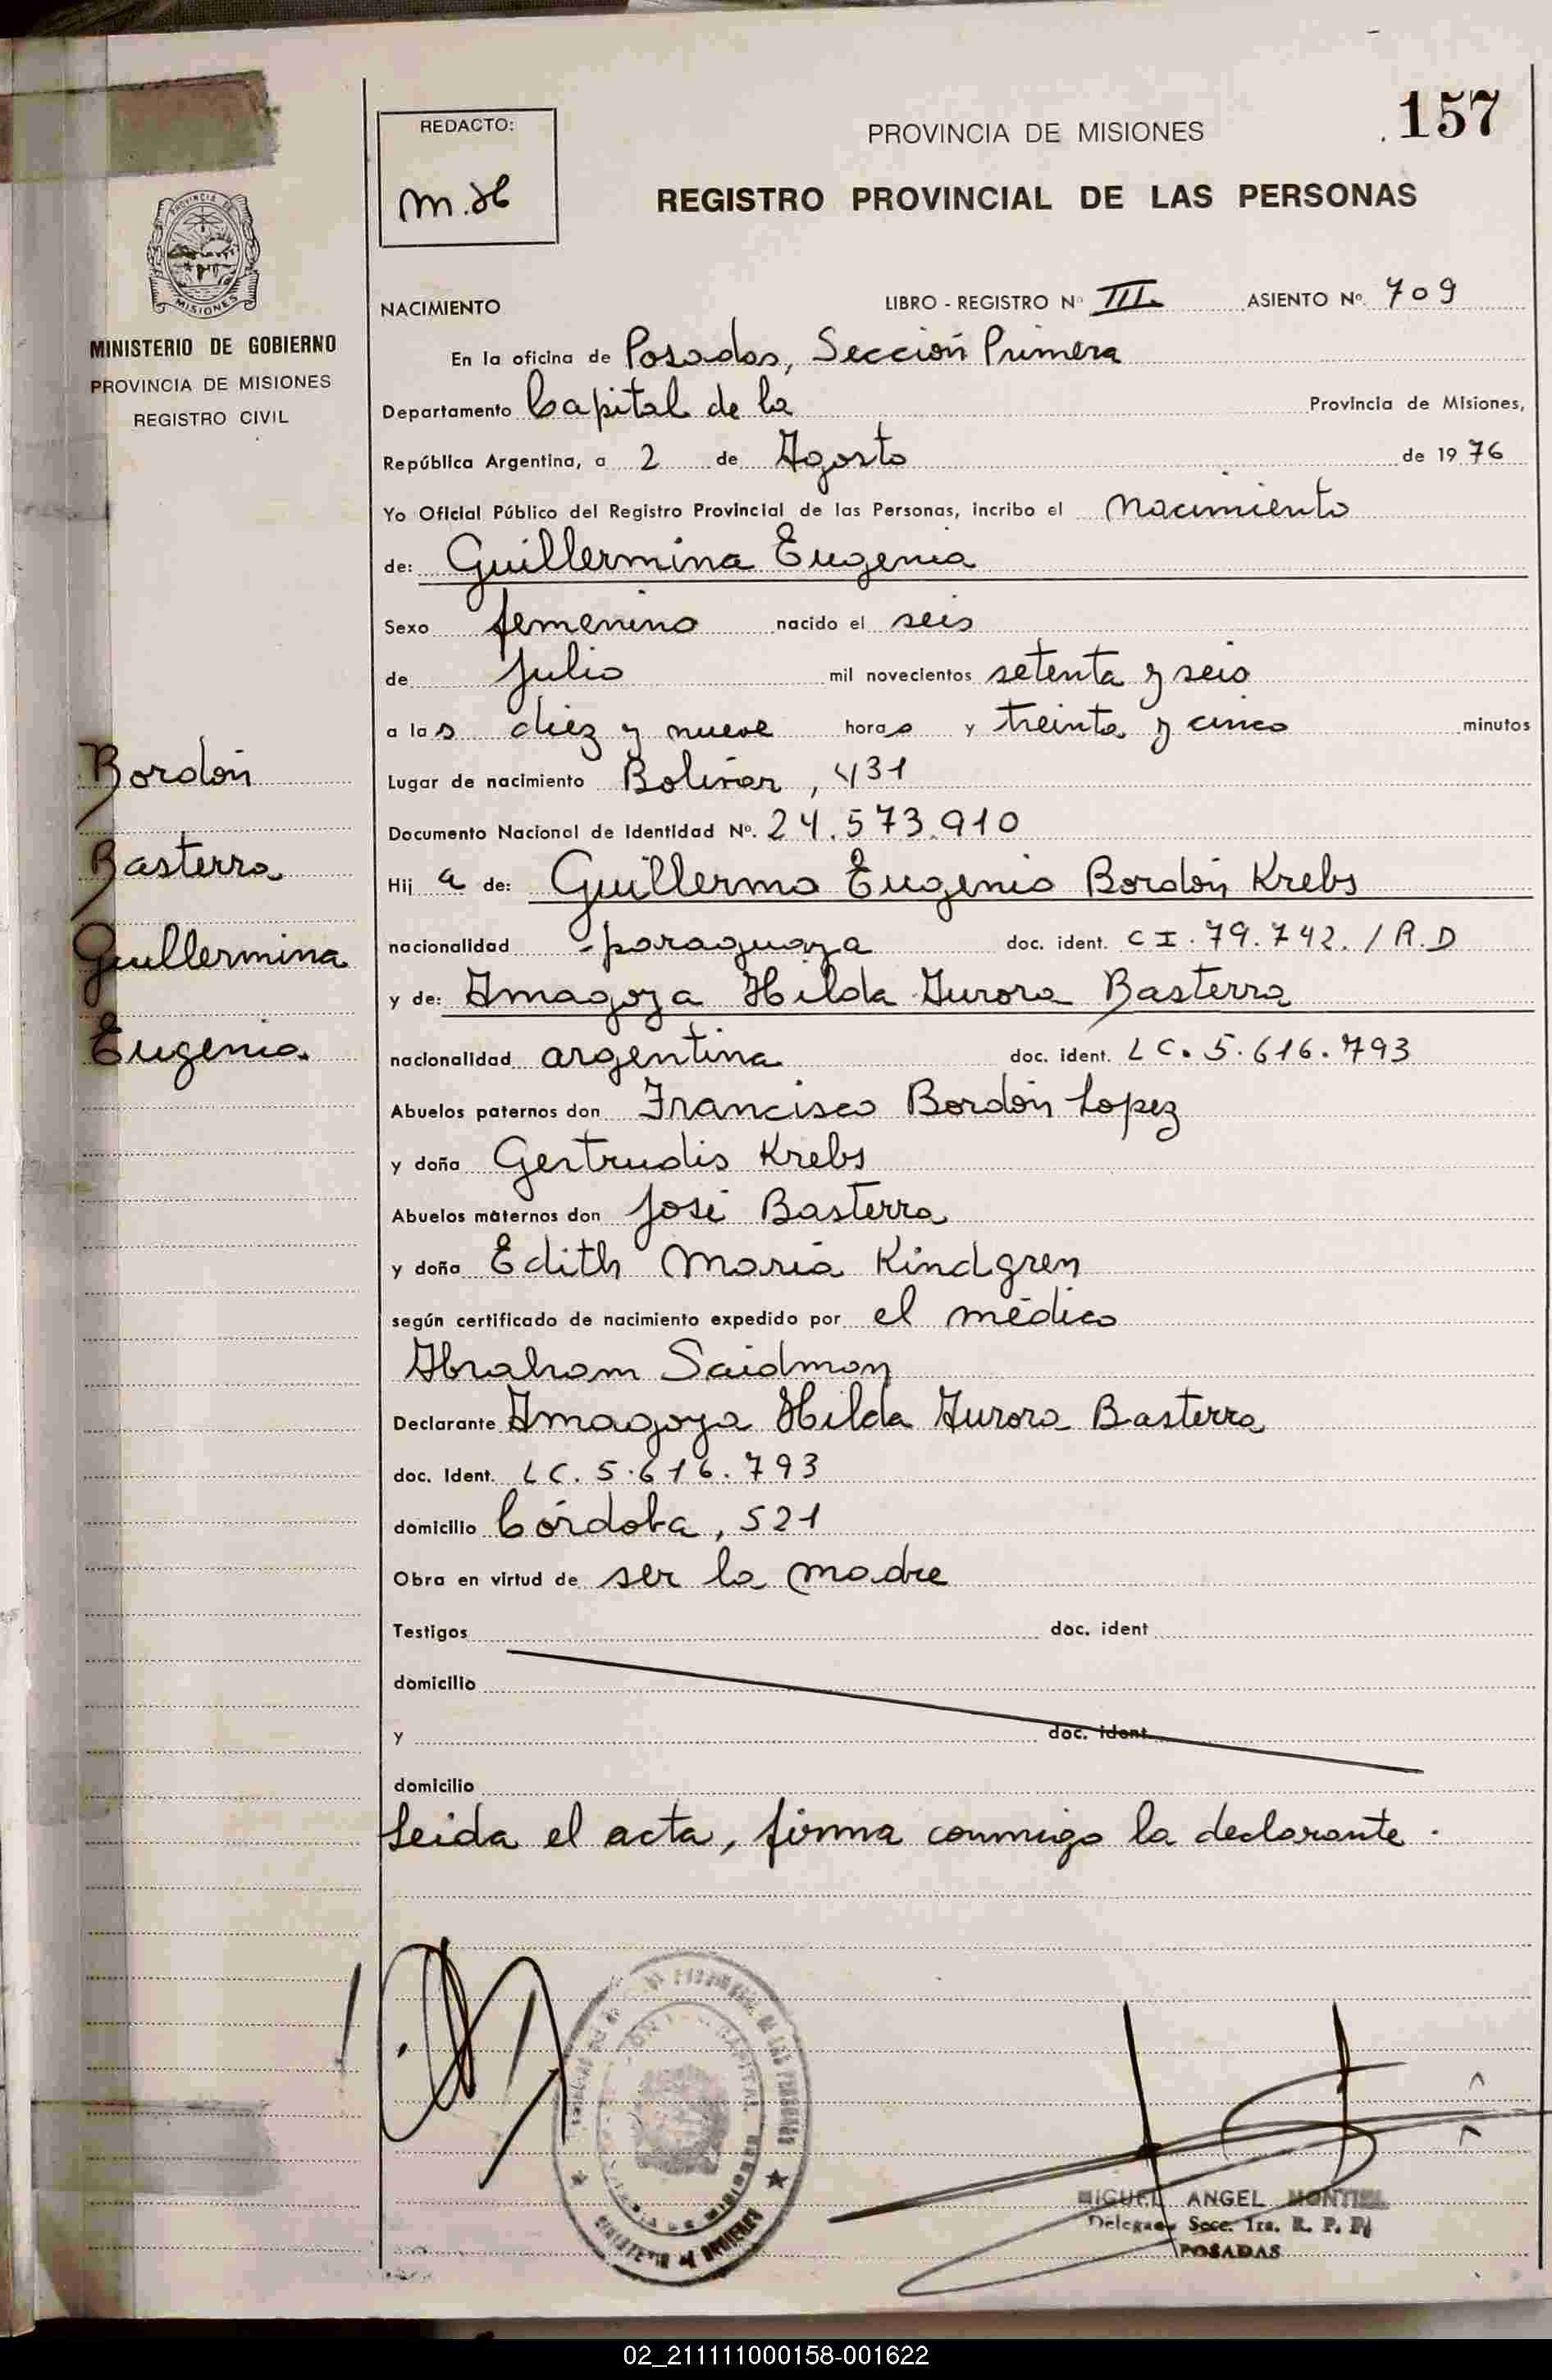 157
REDACTO:
m.H
PROVINCIA DE MISIONES
REGISTRO PROVINCIAL DE LAS PERSONAS
PROVINCIA DE
MISIONES
MINISTERIO DE GOBIERNO
PROVINCIA DE MISIONES
REGISTRO CIVIL
Bordón
Basterra
Guillermina
Eugenia.
NACIMIENTO LIBRO - REGISTRO Nº III ASIENTO Nº 709
En la oficina de Posadas, Sección Primera
Departamento Capital de la Provincia de Misiones,
República Argentina, a 2 de Agosto de 1976
Yo Oficial Público del Registro Provincial de las Personas, incribo el nacimiento
de: Guillermina Eugenia
Sexo femenino nacido el seis
de julio mil novecientos setenta y seis
a las diez y nueve horas y treinta y cinco minutos
Lugar de nacimiento Bolívar, 431
Documento Nacional de Identidad Nº. 24.573.910
Hij a de: Guillermo Eugenio Bordón Krebs
nacionalidad paraguaya doc. ident. CI. 79.742. / R.D
y de: Amagoya Hilda Aurora Basterra
nacionalidad argentina doc. ident. LC. 5.616.793
Abuelos paternos don Francisco Bordón Lopez
y doña Gertrudis Krebs
Abuelos maternos don José Basterra
y doña Edith María Kindgren
según certificado de nacimiento expedido por el médico
Abraham Saidman
Declarante Amagoya Hilda Aurora Basterra
doc. Ident. LC. 5.616.793
domicilio Córdoba, 521
Obra en virtud de ser la madre
Testigos doc. ident
domicilio
y doc. ident
domicilio
Leida el acta, firma conmigo la declarante.
MIGUEL ANGEL MONTIEL
Delegado Secc. 1ra. R. P. P.
POSADAS
02_211111000158-001622